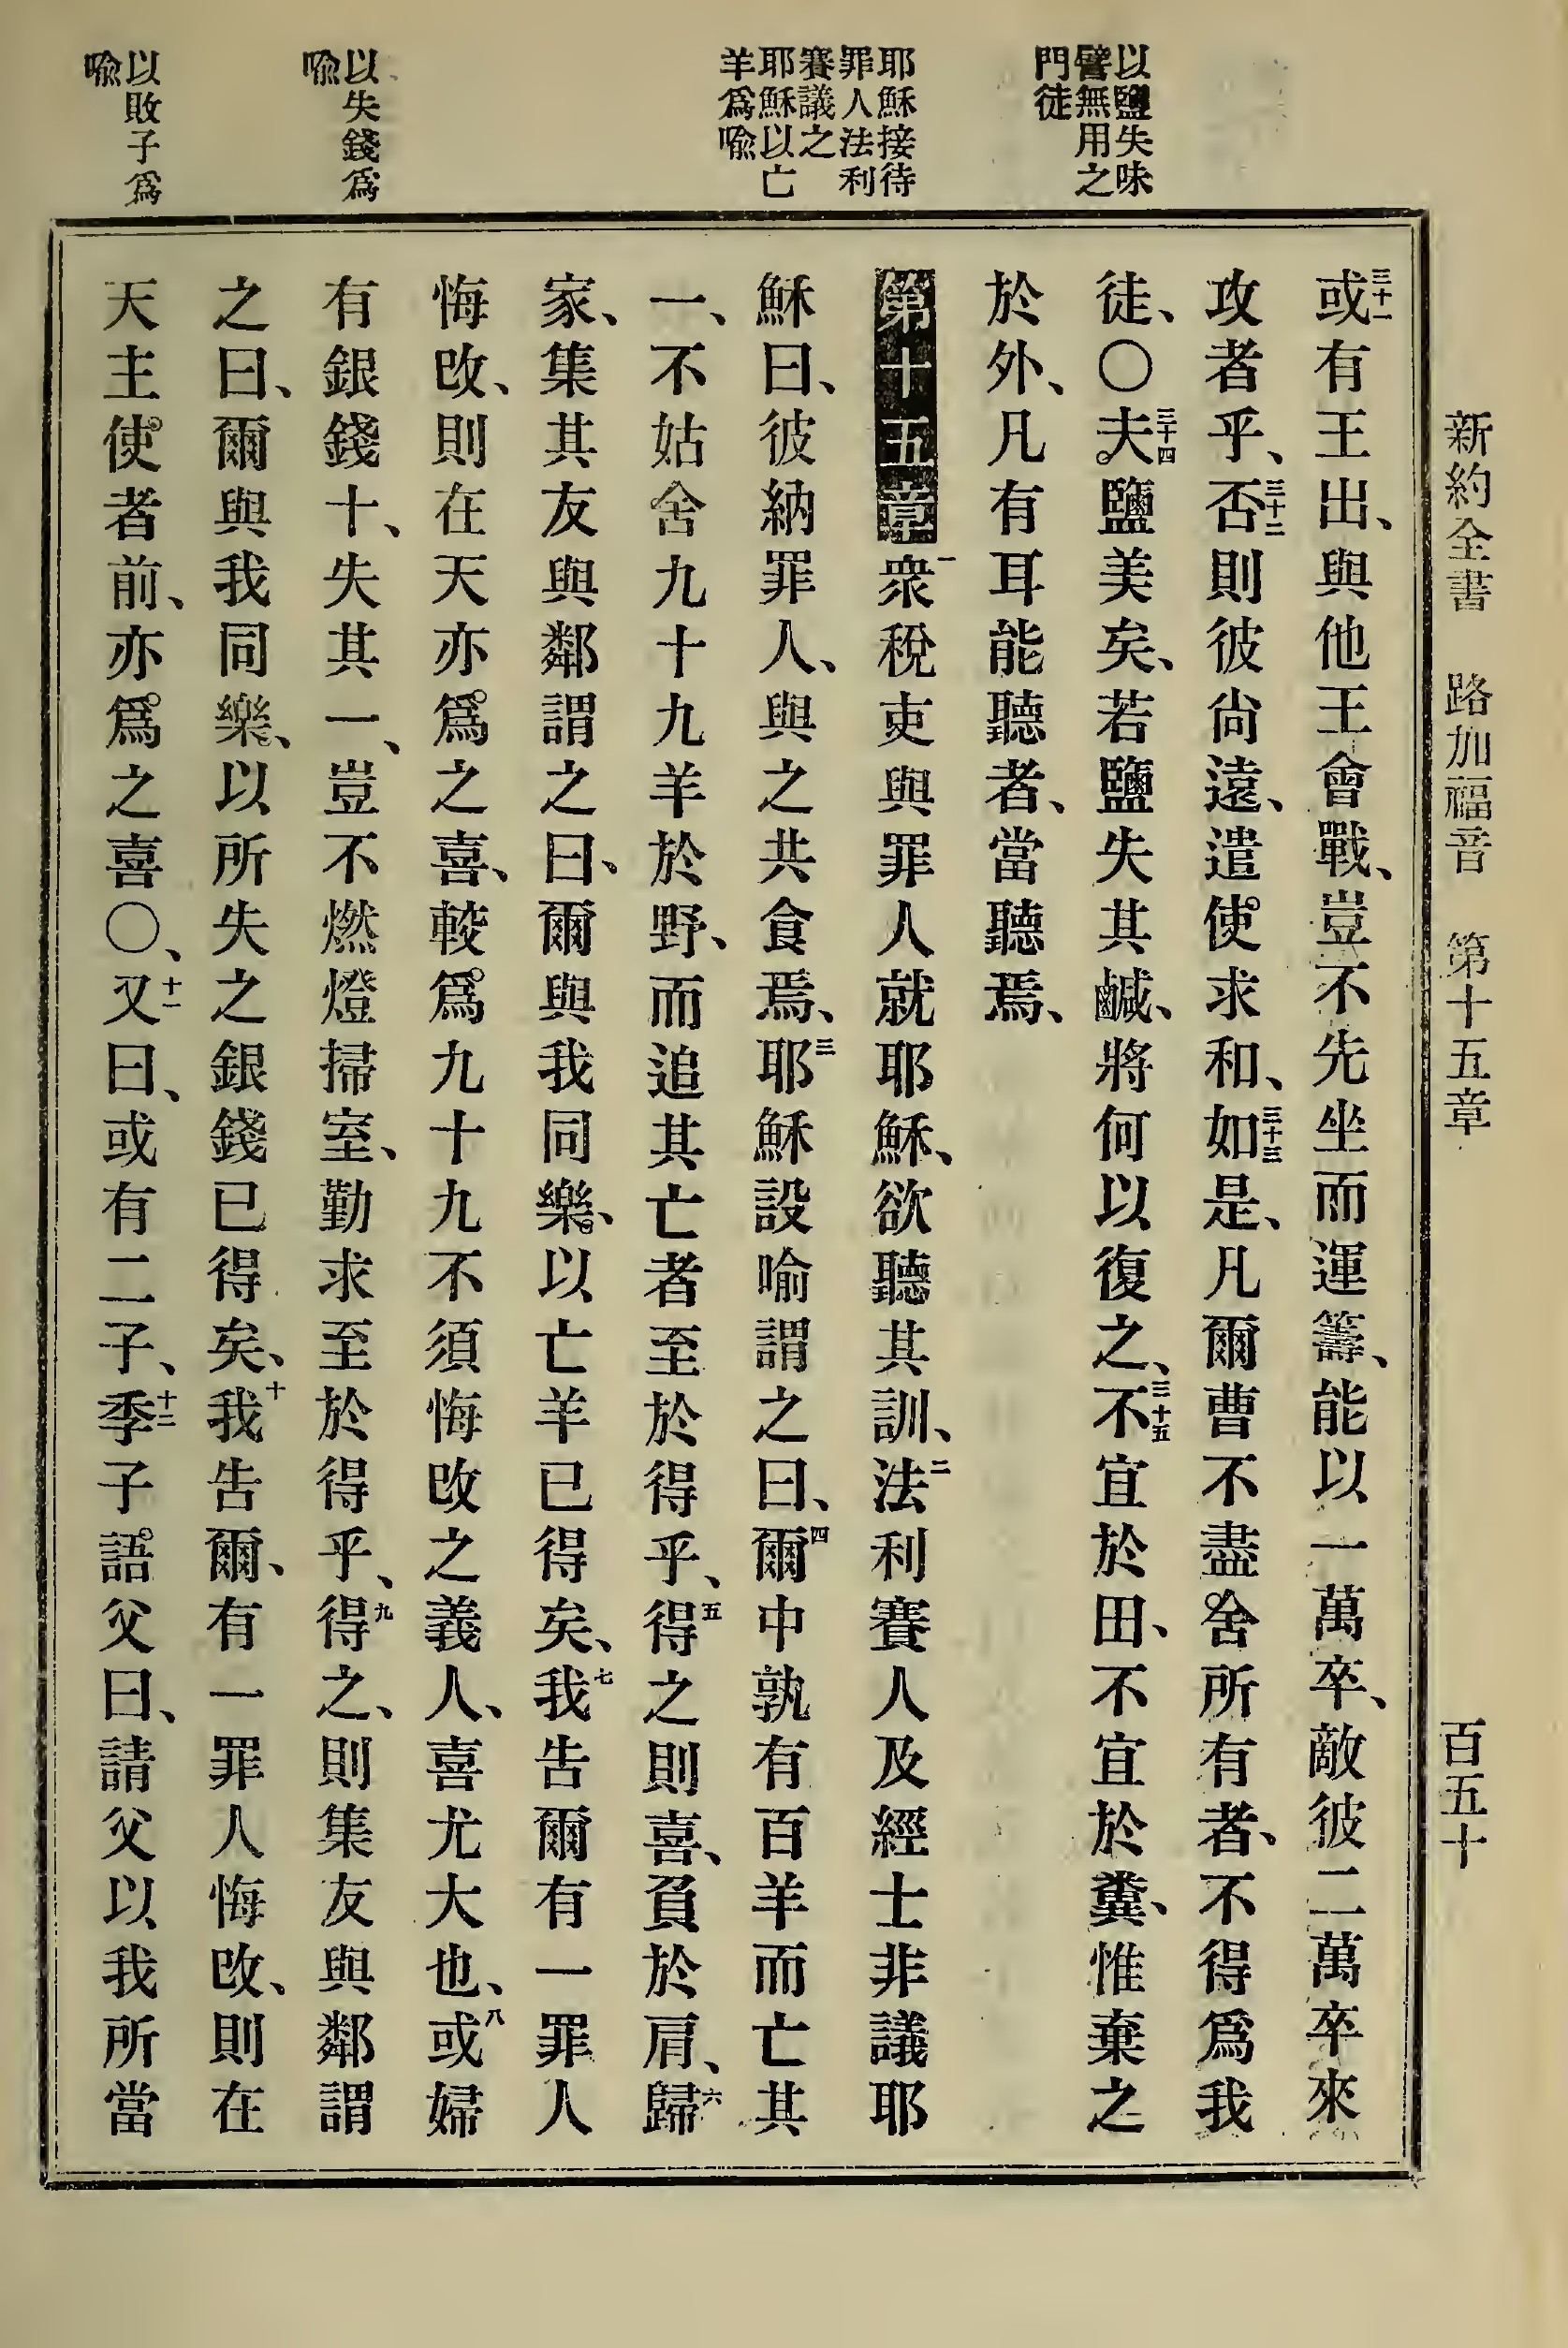 新約全書 路加福音 第十五章 百五十
以鹽失味
譬無用之
門徒
耶穌接待
罪人法利
賽議之
耶穌以亡
羊爲喩
以失錢爲
喩
以敗子爲
喩
三十一或有王出、與他王會戰、豈不先坐而運籌、能以一萬卒、敵彼二萬卒來
攻者乎、三十二否則彼尚遠、遣使求和、三十三如是、凡爾曹不盡舍所有者、不得爲我
徒、〇三十四夫鹽美矣、若鹽失其鹹、將何以復之、三十五不宜於田、不宜於糞、惟棄之
於外、凡有耳能聽者、當聽焉、
第十五章一衆稅吏與罪人就耶穌、欲聽其訓、二法利賽人及經士非議耶
穌曰、彼納罪人、與之共食焉、三耶穌設喻謂之曰、四爾中孰有百羊而亡其
一、不姑舍九十九羊於野、而追其亡者至於得乎、五得之則喜、負於肩、六歸
家、集其友與鄰謂之曰、爾與我同樂、以亡羊已得矣、七我告爾有一罪人
悔改、則在天亦爲之喜、較爲九十九不須悔改之義人、喜尤大也、八或婦
有銀錢十、失其一、豈不燃燈掃室、勤求至於得乎、九得之、則集友與鄰謂
之曰、爾與我同樂、以所失之銀錢已得矣、十我告爾、有一罪人悔改、則在
天主使者前、亦爲之喜〇、十一又曰、或有二子、十二季子語父曰、請父以我所當